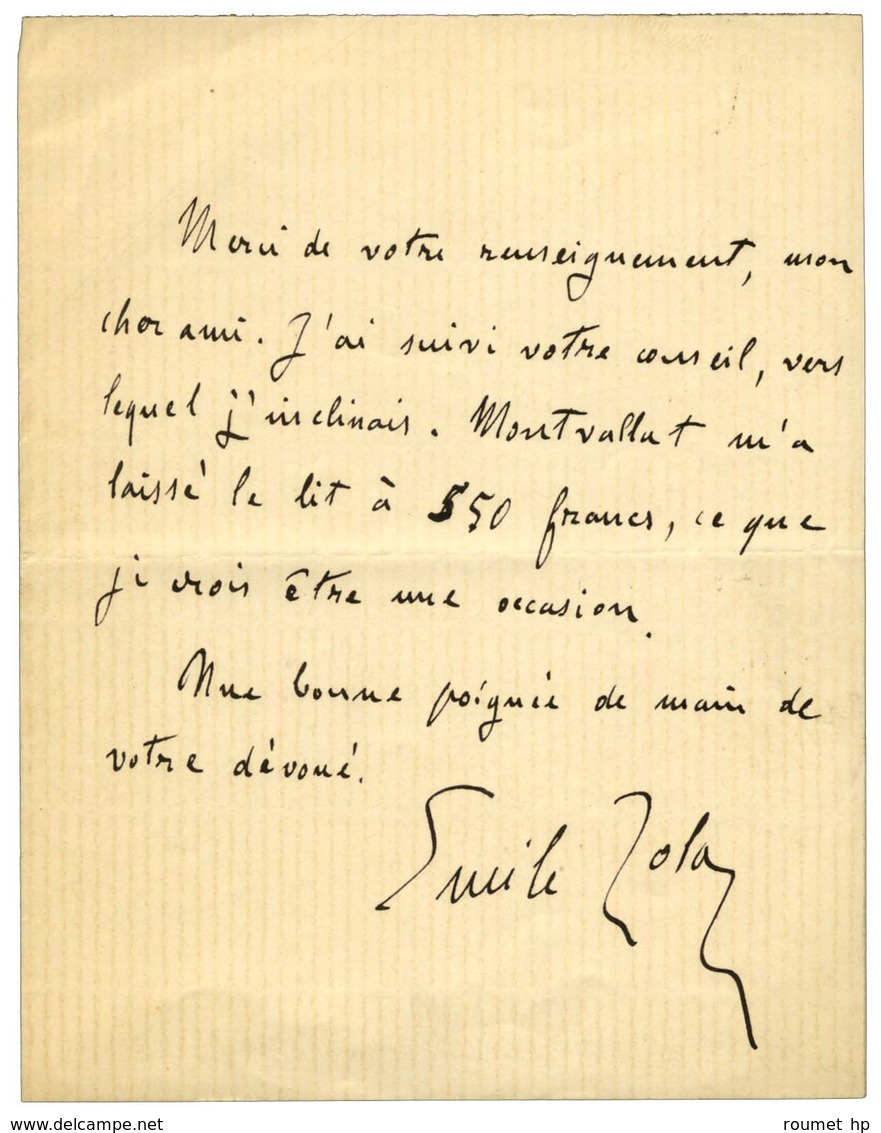 Merci de votre renseignement, mon
cher ami. J'ai suivi votre conseil, vers
lequel j'inclinais. Montvallat m'a
laissé le lit à 550 francs, ce que
je crois être une occasion.
Une bonne poignée de main de
votre dévoué.
Emile Zola
delcampe.net
roumet hp